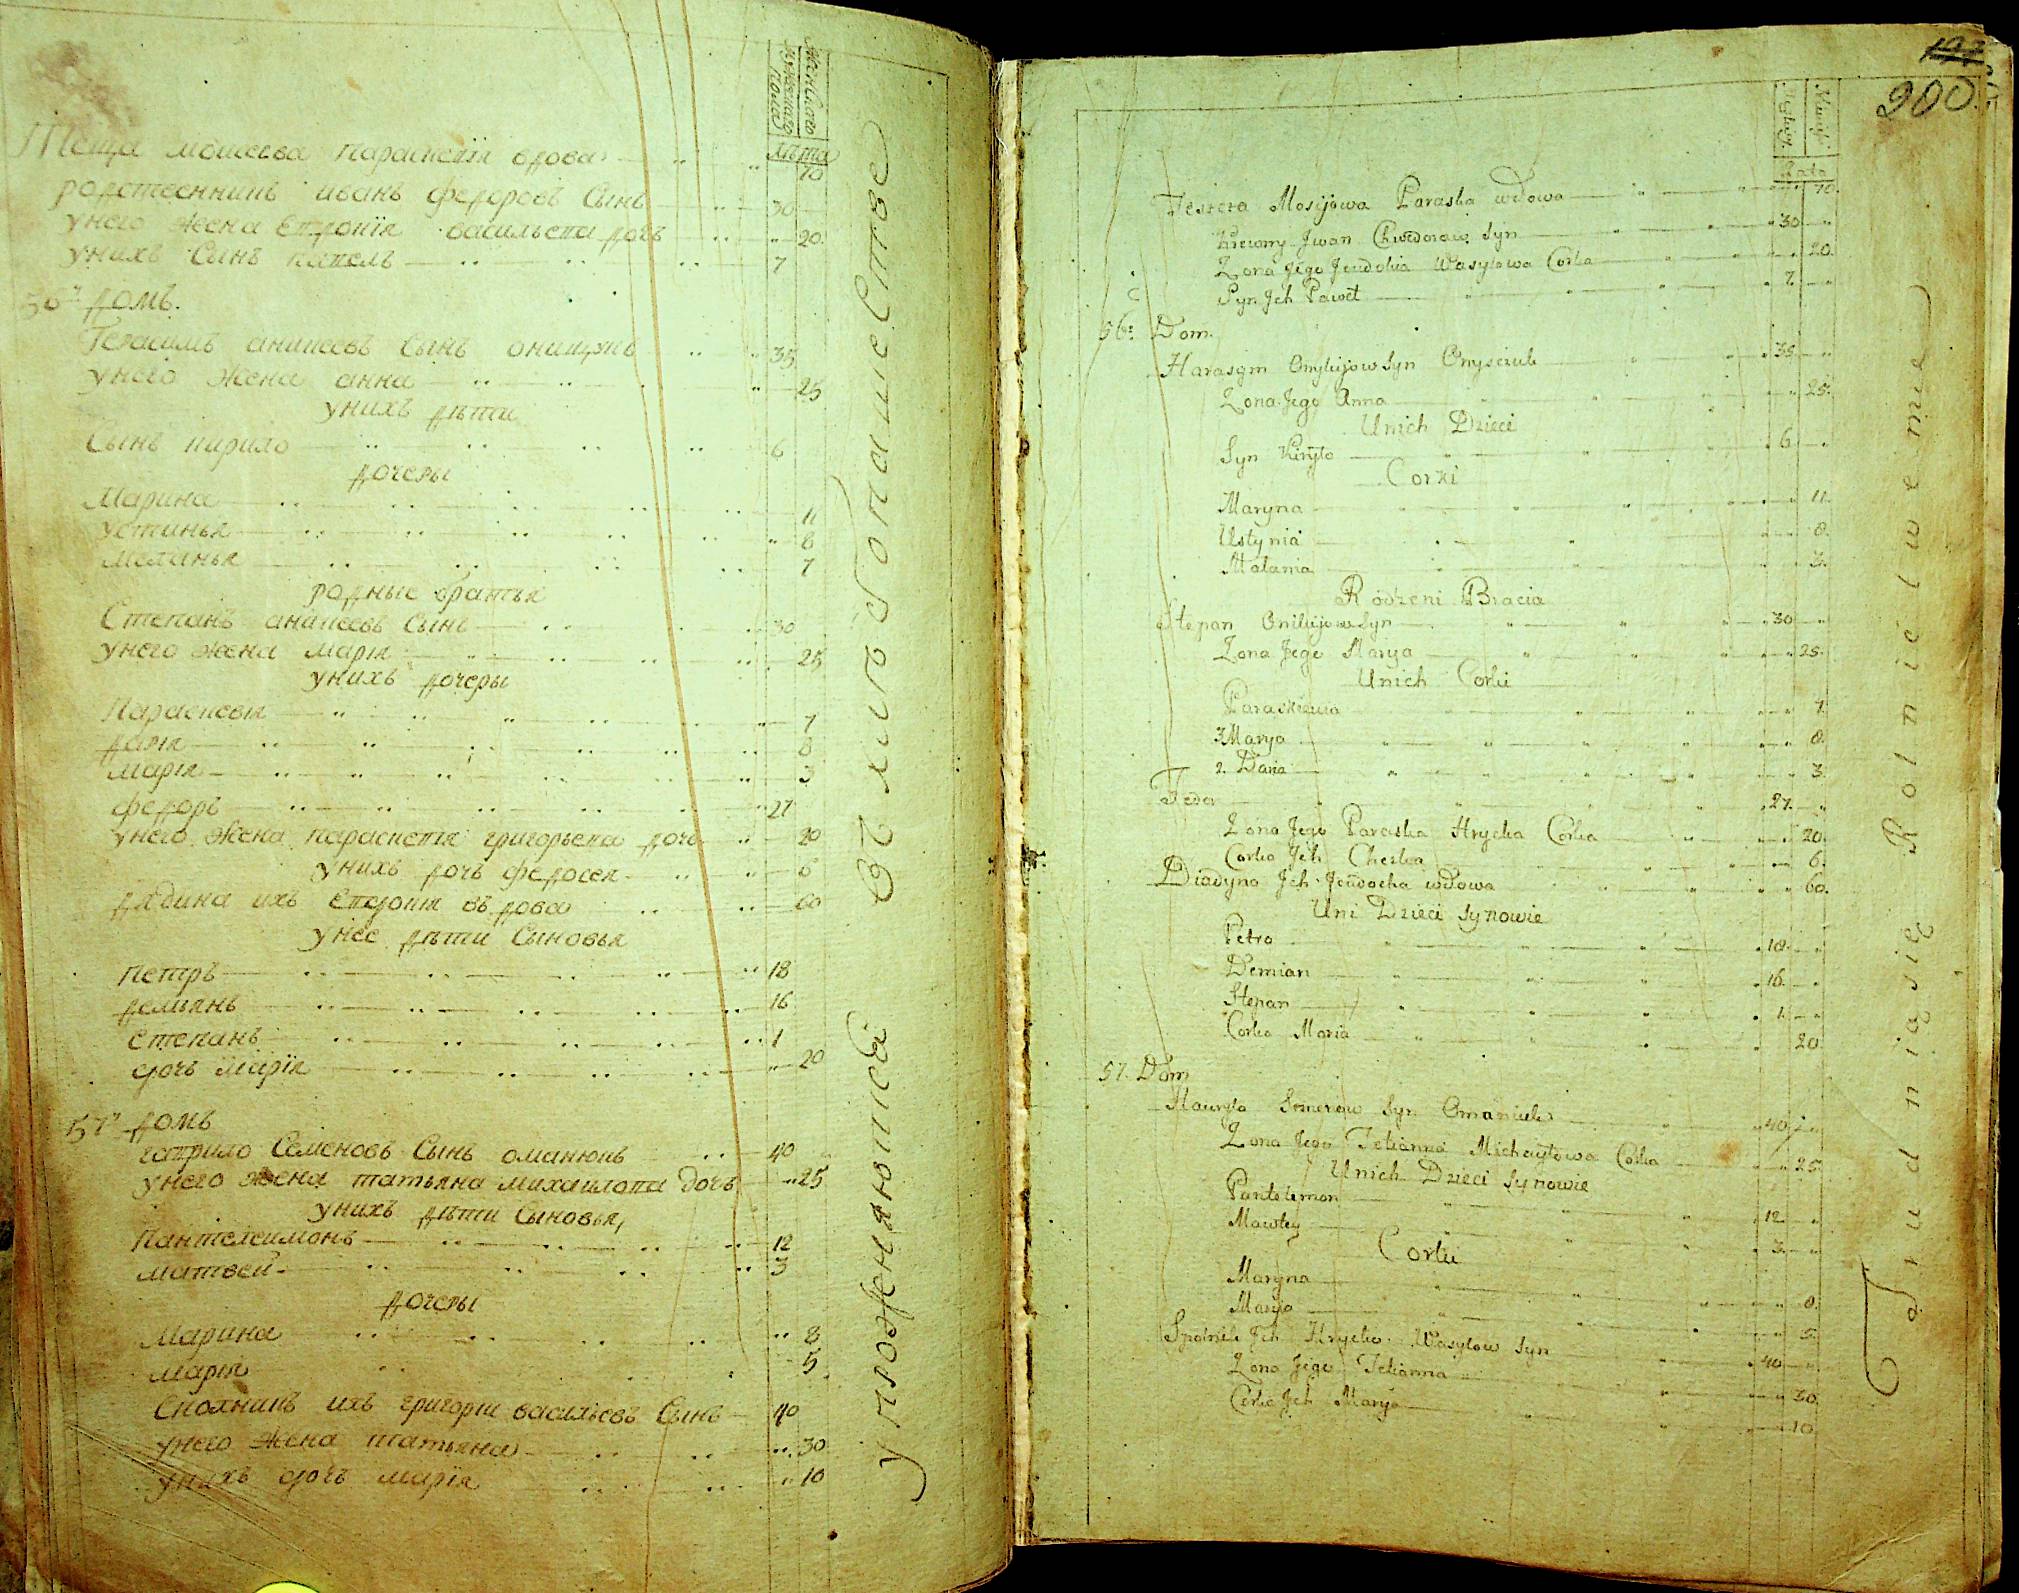 Мужескаго полу
Женскаго
лѣта
Теща моисеева Параскевiя вдова 70
родственникъ иванъ федоровъ Сынъ 30
унего жена Евдокiя васильева дочь 20
унихъ Сынъ павелъ 7
56й домъ.
Герасимъ аникеевъ Сынъ онищукъ 35
унего жена анна 25
унихъ дѣти
Сынъ кирило 6
дочеры
Марина 11
устинья 8
меланья 7
родные братья
Степанъ аникеевъ Сынъ 30
унего жена марiя 25
унихъ дочеры
Параскевiя 7
дарiя 8
марiя 3
федоръ 27
унего жена параскевiя григорьева дочь 20
унихъ дочь федосея 6
дядина ихъ Евдокiя вдова 60
унее дѣти Сыновья
петръ 18
демьянъ 16
степанъ 1
дочь марiя 20
57й домъ
гаврило Семеновъ Сынъ оманюкъ 40
унего жена татьяна михаилова дочь 25
унихъ дѣти Сыновья,
Пантелеимонъ 12
матвей 3
дочеры
Марина 8
марiя 5
Сполникъ ихъ григорiи васильевъ Сынъ 40
унего жена татьяна 30
унихъ дочь марiя 10
упрожняются въ хлѣбопашестве
200.
Lata
Teszcza Mosijowa Paraska wdowa 70.
Krewny Jwan Chwedorow Syn 30
Zona Jego Jeudokia Wasylowa Corka 20.
Syn Jch Paweł 7.
56: Dom.
Harasym Onykijow Syn Onysciuk 35
Zona Jego Anna 25.
Unich Dzieci
Syn Kiryło 6
Corki
Maryna 11.
Ustynia 8.
Małania 3.
Rodzeni Bracia
Stepan Onikijow Syn 30
Zona Jego Marya 25.
Unich Corki
Paraskiewia 7.
3. Marya 8.
2. Daria 3.
Fedor 27.
Zona Jego Paraska Hrycka Corka 20.
Corka Jch Cheska 6.
Diadyna Jch Jeudocha wdowa 60.
Uni Dzieci Synowie
Petro 18.
Demian 16.
Stepan 1.
Corka Maria 20
57. Dom
Hawryło Semenow Syn Omaniuk 40
Zona Jego Tetianna Michayłowa Corka 25.
Unich Dzieci Synowie
Pantelemon 12
Mawtey 3.
Corki
Maryna 8.
Marya 5.
Spolnik Jch Hrycko Wasylow Syn 40
Zona Jego Tetianna 30.
Corka Jch Marya 10
Trudnią się Rolnictwem